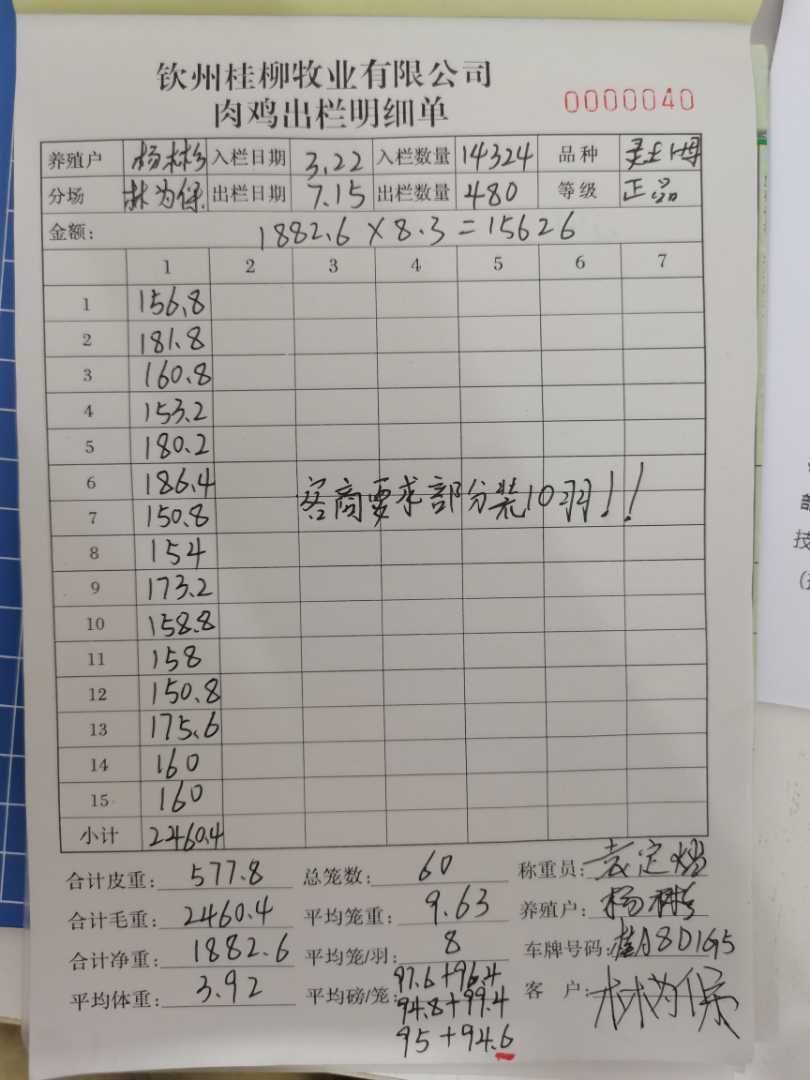 钦州桂柳牧业有限公司
肉鸡出栏明细单
0000040
养殖户 杨彬 入栏日期 3.22 入栏数量 14324 品种
分场 林为保 出栏日期 7.15 出栏数量 480 等级 正品
金额: 1882.6 × 8.3 = 15626
1 2 3 4 5 6 7
1 156.8
2 181.8
3 160.8
4 153.2
5 180.2
6 186.4
客商要求部分装10羽!!
7 150.8
8 154
9 173.2
10 158.8
11 158
12 150.8
13 175.6
14 160
15 160
小计 2460.4
合计皮重: 577.8 总笼数: 60 称重员:
合计毛重: 2460.4 平均笼重: 9.63 养殖户: 杨彬
合计净重: 1882.6 平均笼/羽: 8 车牌号码: 桂A8D1G5
平均体重: 3.92 平均磅/笼: 97.6+96.4 客 户: 林为保
94.8+99.4
95+94.6
技